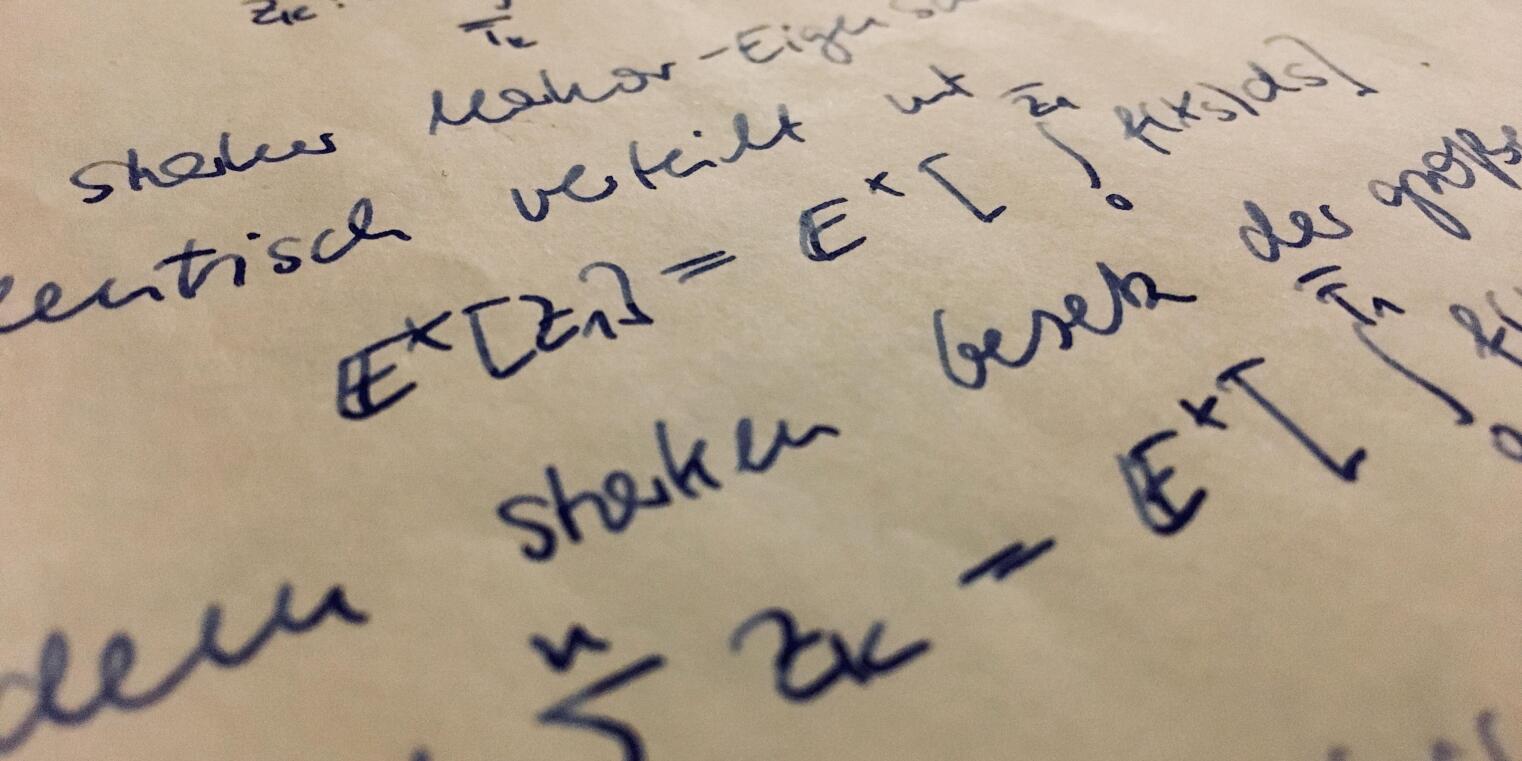 Z_k
T_k
starker Markov-Eigensch
identisch verteilt mit
E^x[Z_1] = E^x[ ∫_0 f(X_s)ds]
dem starken Gesetz der große
n
∑ Z_k = E^x[ ∫_0^{T_1} f(